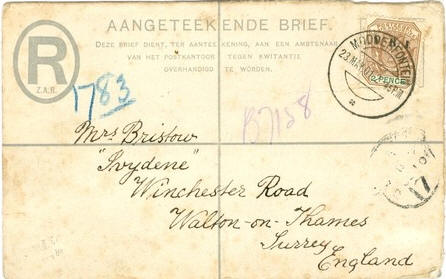 AANGETEEKENDE BRIEF.
DEZE BRIEF DIENT, TER AANTEEKENING, AAN EEN AMBTENAAR
VAN HET POSTKANTOOR TEGEN KWITANTIE
OVERHANDIGD TE WORDEN.
R
Z.A.R.
MODDERFONTEIN
PENCE
1783
B7158
Mrs Bristow
"Ivydene"
Winchester Road
Walton-on-Thames
Surrey
England